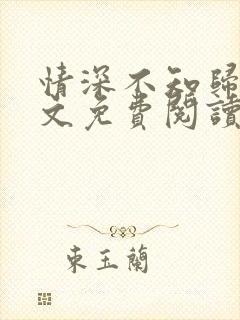 情深不知歸
文免費閱讀
東玉蘭